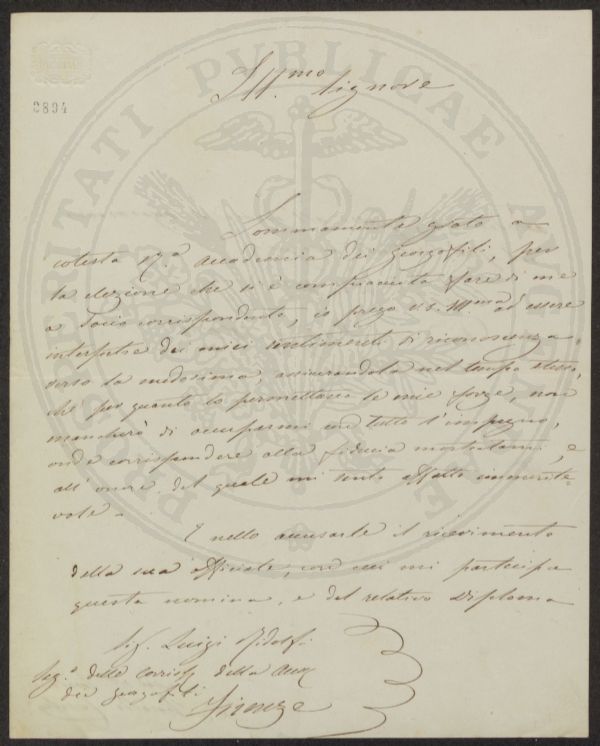 PROSPERITATI PUBLICAE AUGENDAE
2894
Ill.mo Signore
Sommamente grato a
cotesta I. R. Accademia dei Georgofili, per
la elezione che si è compiaciuta fare di me
a Socio corrispondente, io prego V. S. Ill.ma ad essere
interpetre dei miei sentimenti di riconoscenza
verso la medesima, assicurandola nel tempo stesso,
che per quanto lo permettano le mie forze, non
mancherò di occuparmi con tutto l'impegno,
onde corrispondere alla fiducia mostratami, e
all'onore del quale mi sento affatto immerite-
vole.
E nello accusarle il ricevimento
della sua officiale, con cui mi partecipa
questa nomina, e del relativo Diploma
Sig. Luigi Ridolfi
Seg.o delle Corrisp. della Acc.
dei Georgofili
Firenze